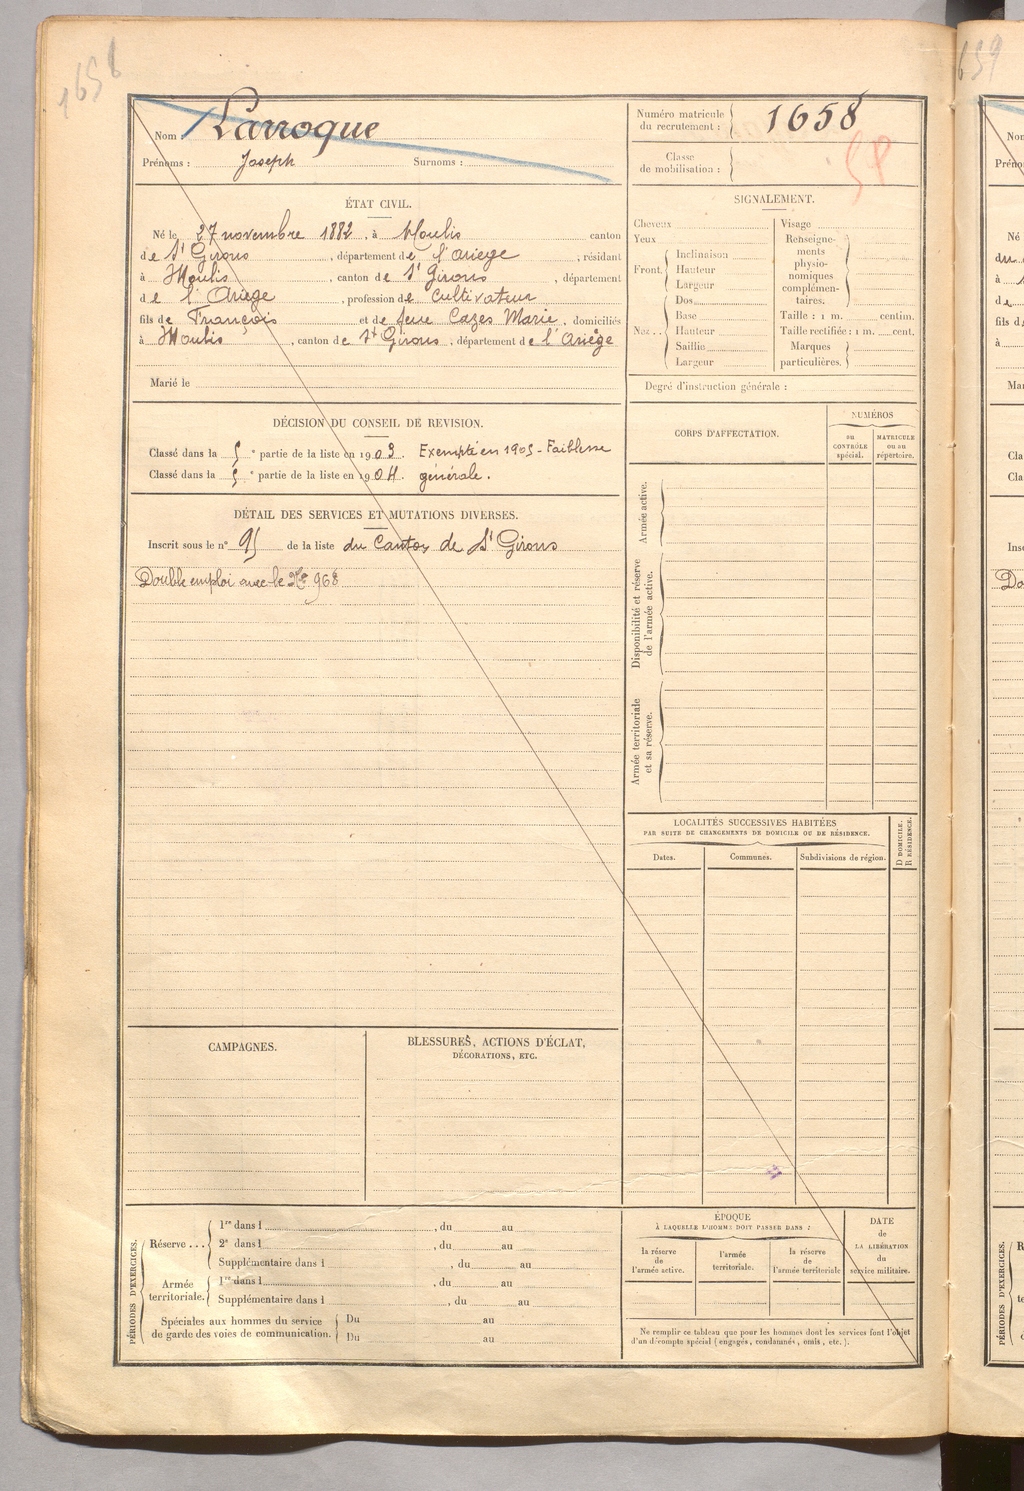 1658
Nom : Larroque
Prénoms : Joseph Surnoms :
Numéro matricule du recrutement : 1658
Classe de mobilisation :
ÉTAT CIVIL.
Né le 27 novembre 1882, à Moulis canton
de St Girons, département de l'Ariège, résidant
à Moulis, canton de St Girons, département
de l'Ariège, profession de Cultivateur
fils de François et de feue Cazes Marie, domiciliés
à Moulis, canton de St Girons, département de l'Ariège
Marié le
SIGNALEMENT.
Cheveux
Yeux
Front.
Inclinaison
Hauteur
Largeur
Nez..
Dos
Base
Hauteur
Saillie
Largeur
Visage
Renseigne-
ments
physio-
nomiques
complémen-
taires.
Taille : 1 m. centim.
Taille rectifiée : 1 m. cent.
Marques
particulières.
Degré d'instruction générale :
DÉCISION DU CONSEIL DE REVISION.
Classé dans la 5e partie de la liste en 1903. Exempté en 1905 - Faiblesse
Classé dans la 5e partie de la liste en 1904. générale.
DÉTAIL DES SERVICES ET MUTATIONS DIVERSES.
Inscrit sous le n° 95 de la liste du Canton de St Girons
Double emploi avec le No 968
CORPS D'AFFECTATION.
NUMÉROS
au
CONTRÔLE
spécial.
MATRICULE
ou au
répertoire.
Armée active.
Disponibilité et réserve
de l'armée active.
Armée territoriale
et sa réserve.
LOCALITÉS SUCCESSIVES HABITÉES
PAR SUITE DE CHANGEMENTS DE DOMICILE OU DE RÉSIDENCE.
Dates.
Communes.
Subdivisions de région.
D DOMICILE.
R RÉSIDENCE.
CAMPAGNES.
BLESSURES, ACTIONS D'ÉCLAT,
DÉCORATIONS, ETC.
PÉRIODES D'EXERCICES.
Réserve ...
1re dans l , du au
2e dans l , du au
Supplémentaire dans l , du au
Armée
territoriale.
1re dans l , du au
Supplémentaire dans l , du au
Spéciales aux hommes du service
de garde des voies de communication.
Du au
Du au
ÉPOQUE
À LAQUELLE L'HOMME DOIT PASSER DANS :
la réserve
de
l'armée active.
l'armée
territoriale.
la réserve
de
l'armée territoriale
DATE
de
LA LIBÉRATION
du
service militaire.
Ne remplir ce tableau que pour les hommes dont les services font l'objet
d'un décompte spécial (engagés, condamnés, omis, etc.).